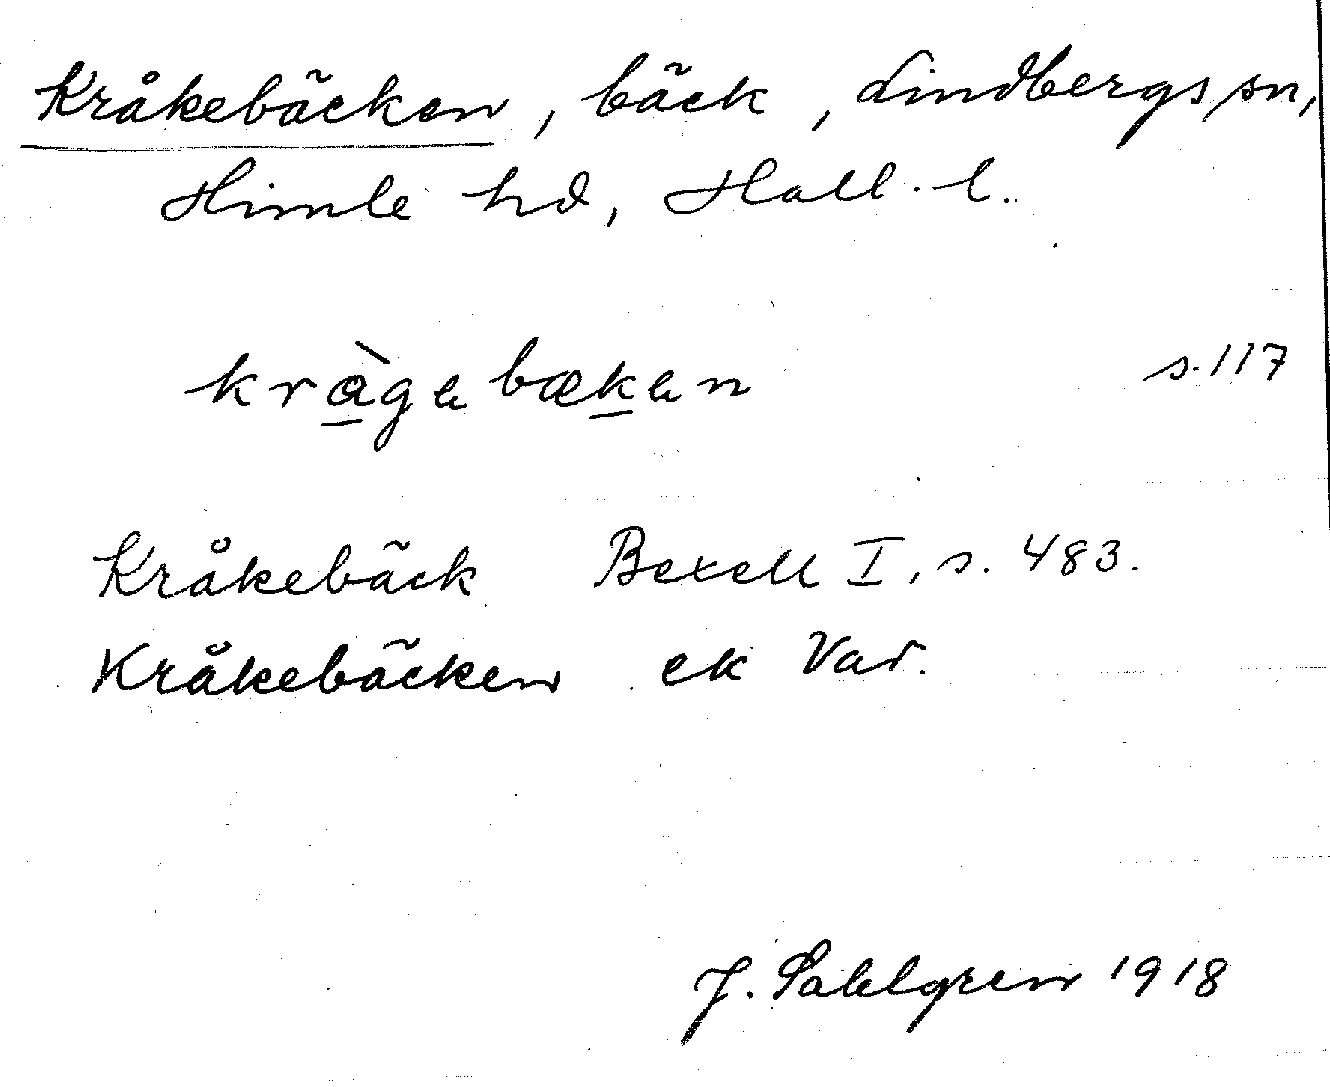 Kråkebäcken, bäck, Lindbergs sn,
Himle hd, Hall. l.
kràgabækan s. 117
Kråkebäck Bexell I, s. 483.
Kråkebäcken ek Var.
J. Sahlgren 1918